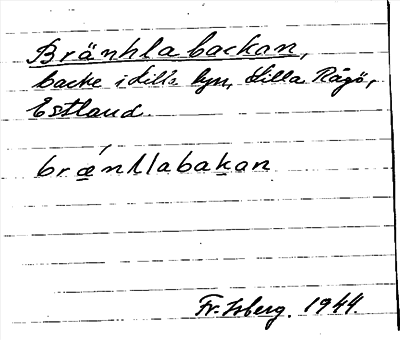 Bränhlabackan,
backe i Lilla byn, Lilla Rågö,
Estland.
brǽnllabakan
Fr. Isberg. 1944.